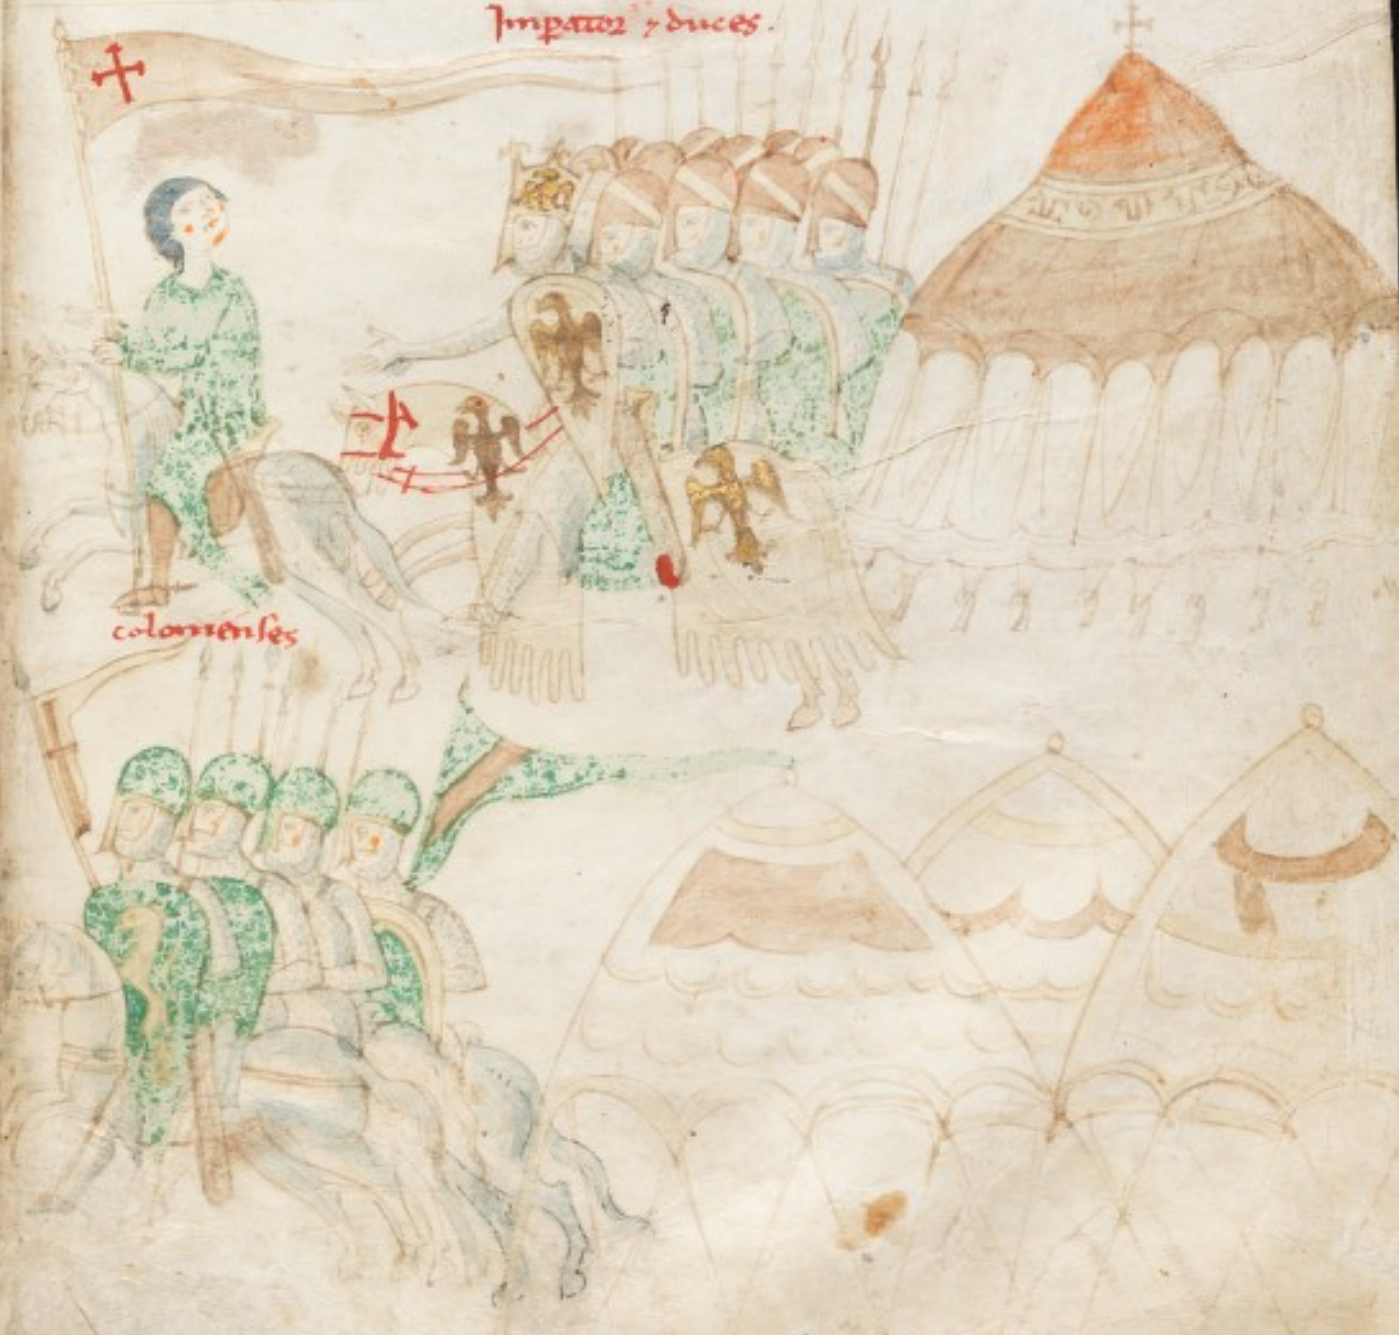 Imperator ⁊ duces.
colonienses